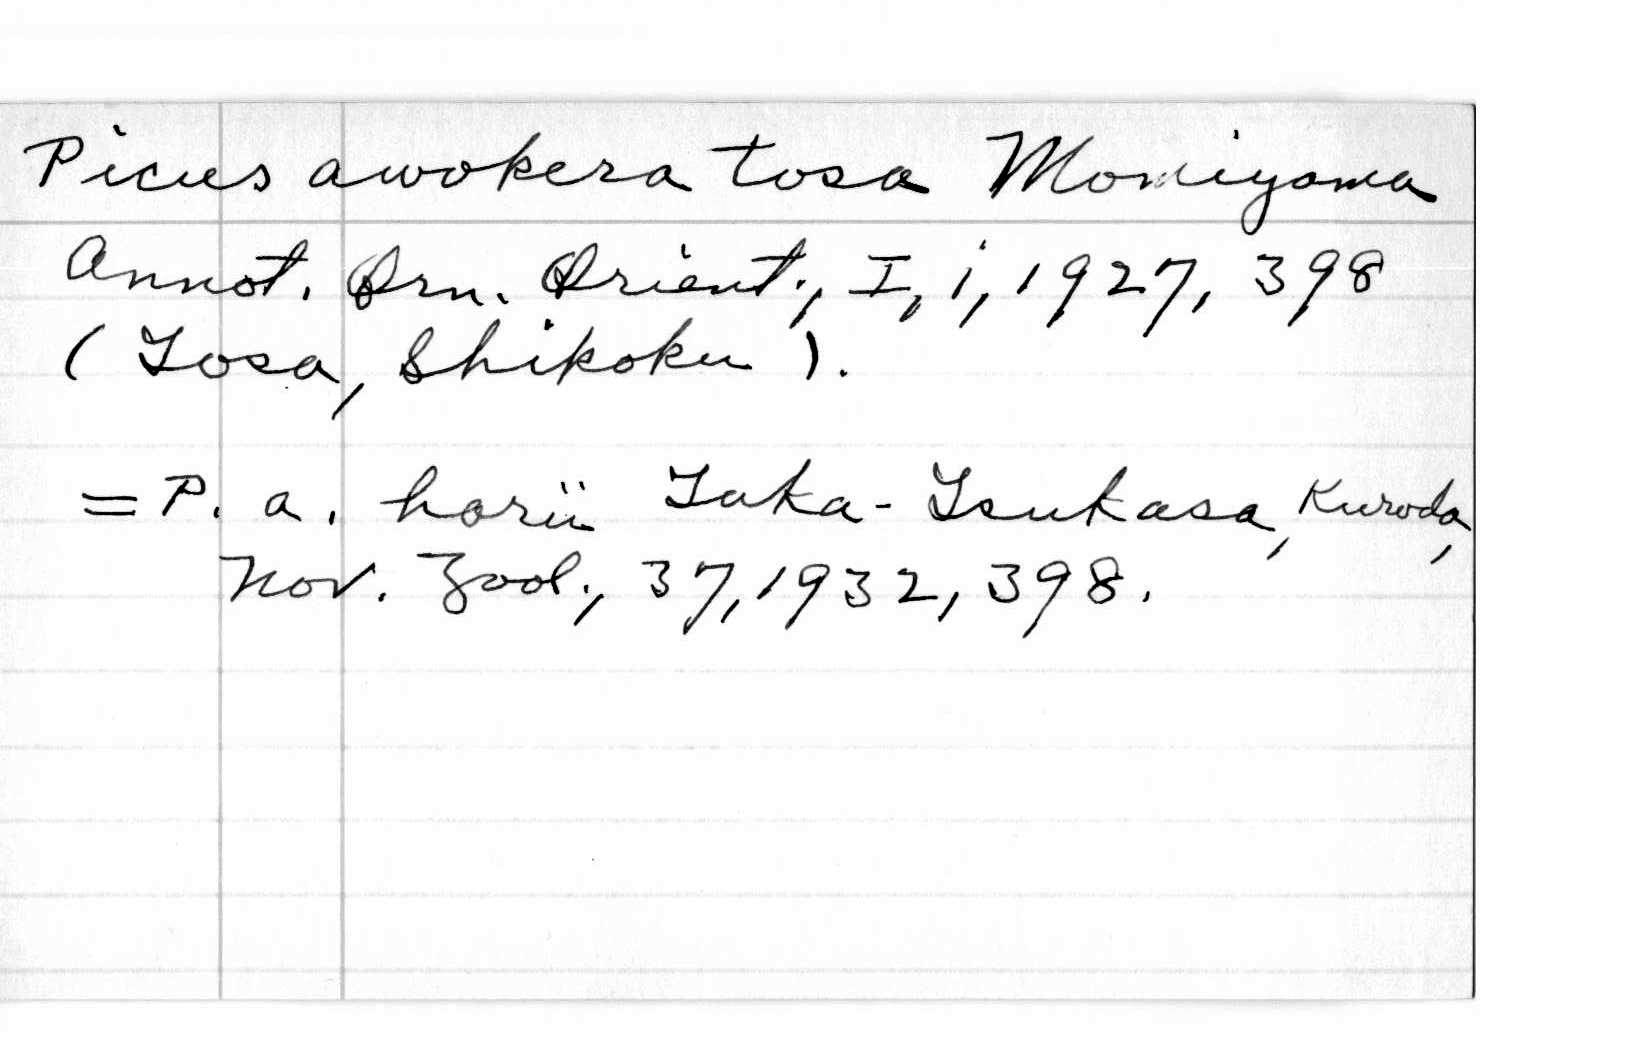 Picus awokera tosa Momiyama
Annot. Orn. Orient., I, i, 1927, 398
(Tosa, Shikoku).
= P. a. horii Taka-Tsukasa, Kuroda,
Nov. Zool., 37, 1932, 398.